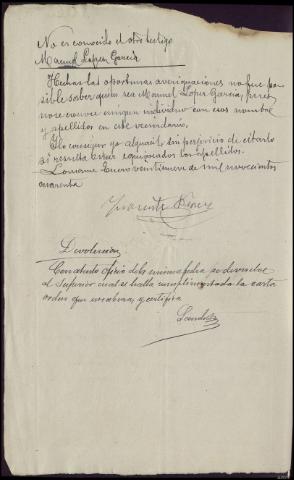 No es conocido el otro testigo
Manuel López García
Hechas las oportunas averiguaciones no fue po-
sible saber quien sea Manuel López García, pues
no se conoce ningun individuo con ese nombre
y apellidos en este vecindario.
sin perjuicio de citarlo
si resulta estar equivocados los apellidos.
Enero veintinueve de mil novecientos
cuarenta
Devolucion
Con atento oficio de la misma fecha se devuelve
al Superior cual se halla cumplimentada la carta
orden que y certifico